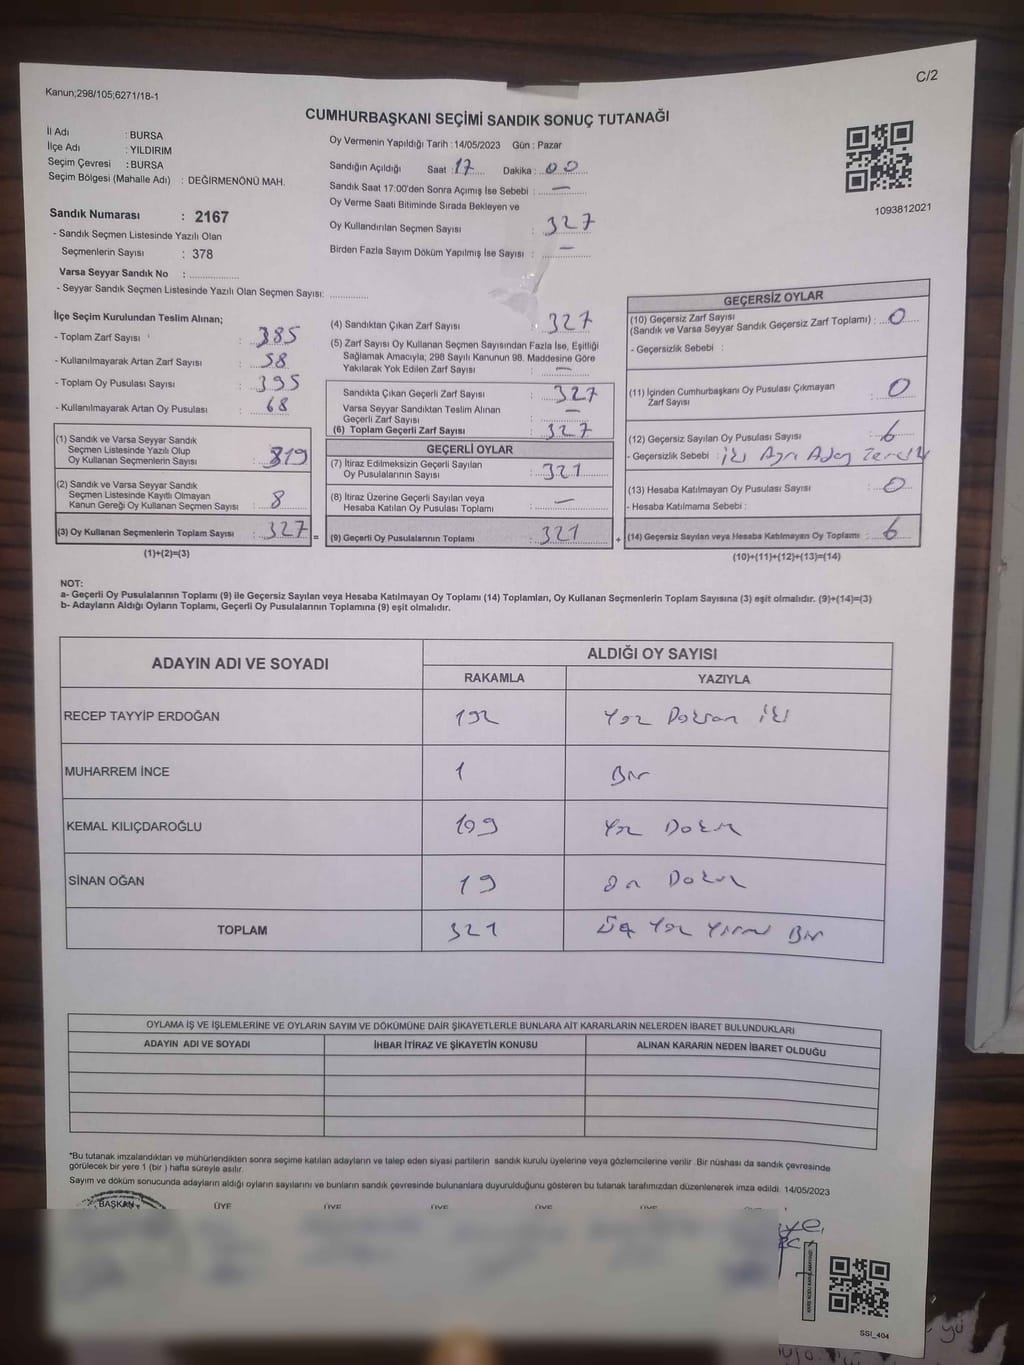 C/2
Kanun;298/105;6271/18-1
CUMHURBAŞKANI SEÇİMİ SANDIK SONUÇ TUTANAĞI
İl Adı : BURSA
İlçe Adı : YILDIRIM
Seçim Çevresi : BURSA
Seçim Bölgesi (Mahalle Adı) : DEĞİRMENÖNÜ MAH.
Sandık Numarası : 2167
- Sandık Seçmen Listesinde Yazılı Olan
Seçmenlerin Sayısı : 378
Varsa Seyyar Sandık No : ..............
- Seyyar Sandık Seçmen Listesinde Yazılı Olan Seçmen Sayısı: ............
Oy Vermenin Yapıldığı Tarih : 14/05/2023 Gün : Pazar
Sandığın Açıldığı Saat : 17 Dakika : 00
Sandık Saat 17:00'den Sonra Açımış İse Sebebi : —
Oy Verme Saati Bitiminde Sırada Bekleyen ve
Oy Kullandırılan Seçmen Sayısı : 327
Birden Fazla Sayım Döküm Yapılmış İse Sayısı : —
1093812021
İlçe Seçim Kurulundan Teslim Alınan;
- Toplam Zarf Sayısı : 385
- Kullanılmayarak Artan Zarf Sayısı : 58
- Toplam Oy Pusulası Sayısı : 395
- Kullanılmayarak Artan Oy Pusulası : 68
(1) Sandık ve Varsa Seyyar Sandık
Seçmen Listesinde Yazılı Olup
Oy Kullanan Seçmenlerin Sayısı : 319
(2) Sandık ve Varsa Seyyar Sandık
Seçmen Listesinde Kayıtlı Olmayan
Kanun Gereği Oy Kullanan Seçmen Sayısı : 8
(3) Oy Kullanan Seçmenlerin Toplam Sayısı : 327 =
(1)+(2)=(3)
(4) Sandıktan Çıkan Zarf Sayısı : 327
(5) Zarf Sayısı Oy Kullanan Seçmen Sayısından Fazla İse, Eşitliği
Sağlamak Amacıyla; 298 Sayılı Kanunun 98. Maddesine Göre
Yakılarak Yok Edilen Zarf Sayısı : —
Sandıkta Çıkan Geçerli Zarf Sayısı : 327
Varsa Seyyar Sandıktan Teslim Alınan
Geçerli Zarf Sayısı : —
(6) Toplam Geçerli Zarf Sayısı : 327
GEÇERLİ OYLAR
(7) İtiraz Edilmeksizin Geçerli Sayılan
Oy Pusulalarının Sayısı : 321
(8) İtiraz Üzerine Geçerli Sayılan veya
Hesaba Katılan Oy Pusulası Toplamı : —
(9) Geçerli Oy Pusulalarının Toplamı : 321 +
GEÇERSİZ OYLAR
(10) Geçersiz Zarf Sayısı
(Sandık ve Varsa Seyyar Sandık Geçersiz Zarf Toplamı) : 0
- Geçersizlik Sebebi :
(11) İçinden Cumhurbaşkanı Oy Pusulası Çıkmayan
Zarf Sayısı : 0
(12) Geçersiz Sayılan Oy Pusulası Sayısı : 6
- Geçersizlik Sebebi : iki Ayrı Aday
(13) Hesaba Katılmayan Oy Pusulası Sayısı : 0
- Hesaba Katılmama Sebebi :
(14) Geçersiz Sayılan veya Hesaba Katılmayan Oy Toplamı : 6
(10)+(11)+(12)+(13)=(14)
NOT:
a- Geçerli Oy Pusulalarının Toplamı (9) ile Geçersiz Sayılan veya Hesaba Katılmayan Oy Toplamı (14) Toplamları, Oy Kullanan Seçmenlerin Toplam Sayısına (3) eşit olmalıdır. (9)+(14)=(3)
b- Adayların Aldığı Oyların Toplamı, Geçerli Oy Pusulalarının Toplamına (9) eşit olmalıdır.
ADAYIN ADI VE SOYADI ALDIĞI OY SAYISI
RAKAMLA YAZIYLA
RECEP TAYYİP ERDOĞAN 192 Yüz Doksan iki
MUHARREM İNCE 1 Bir
KEMAL KILIÇDAROĞLU 109 Yüz Dokuz
SİNAN OĞAN 19 On Dokuz
TOPLAM 321 Üç Yüz Yirmi Bir
OYLAMA İŞ VE İŞLEMLERİNE VE OYLARIN SAYIM VE DÖKÜMÜNE DAİR ŞİKAYETLERLE BUNLARA AİT KARARLARIN NELERDEN İBARET BULUNDUKLARI
ADAYIN ADI VE SOYADI İHBAR İTİRAZ VE ŞİKAYETİN KONUSU ALINAN KARARIN NEDEN İBARET OLDUĞU
*Bu tutanak imzalandıktan ve mühürlendikten sonra seçime katılan adayların ve talep eden siyasi partilerin sandık kurulu üyelerine veya gözlemcilerine verilir. Bir nüshası da sandık çevresinde
görülecek bir yere 1 (bir) hafta süreyle asılır.
Sayım ve döküm sonucunda adayların aldığı oyların sayılarını ve bunların sandık çevresinde bulunanlara duyurulduğunu gösteren bu tutanak tarafımızdan düzenlenerek imza edildi. 14/05/2023
BAŞKAN ÜYE ÜYE ÜYE ÜYE ÜYE
SSI_404